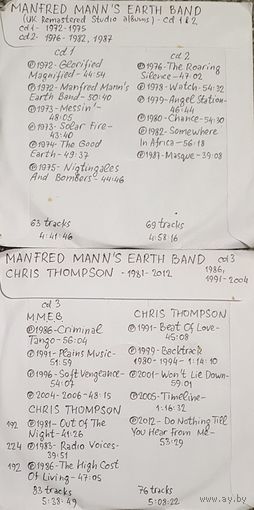 MANFRED MANN'S EARTH BAND
(UK Remastered Studio albums) - cd 1 & 2.
cd1 - 1972-1975
cd2 - 1976-1982, 1987
cd 1
℗1972-Glorified
Magnified - 44:54
℗1972-Manfred Mann's
Earth Band - 50:40
℗1973-Messin' -
48:05
℗1973-Solar Fire -
43:40
℗1974-The Good
Earth - 49:37
℗1975-Nigtingales
And Bombers - 44:46
63 tracks
4:41:46
cd 2
℗1976-The Roaring
Silence - 47:02
℗1978-Watch - 54:32
℗1979-Angel Station -
46:44
℗1980-Chance - 54:30
℗1982-Somewhere
In Africa - 56:18
℗1987-Masque - 39:08
69 tracks
4:58:16
MANFRED MANN'S EARTH BAND cd 3
CHRIS THOMPSON - 1981-2012
1986,
1991-2004
cd 3
M.M.E.B
℗1986-Criminal
Tango - 56:04
℗1991-Plains Music -
51:59
℗1996-Soft Vengeance -
54:07
℗2004-2006 - 48:15
CHRIS THOMPSON
192 ℗1981-Out Of The
Night - 41:26
224 ℗1983-Radio Voices -
39:51
192 ℗1986-The High Cost
Of Living - 47:05
83 tracks
5:38:49
CHRIS THOMPSON
℗1991-Beat Of Love -
45:08
℗1999-Backtrack
1980-1994 - 1:14:10
℗2001-Won't Lie Down -
59:01
℗2005-Timeline -
1:16:32
℗2012-Do Nothing Till
You Hear From Me -
53:29
76 tracks
5:08:22
www.ay.by